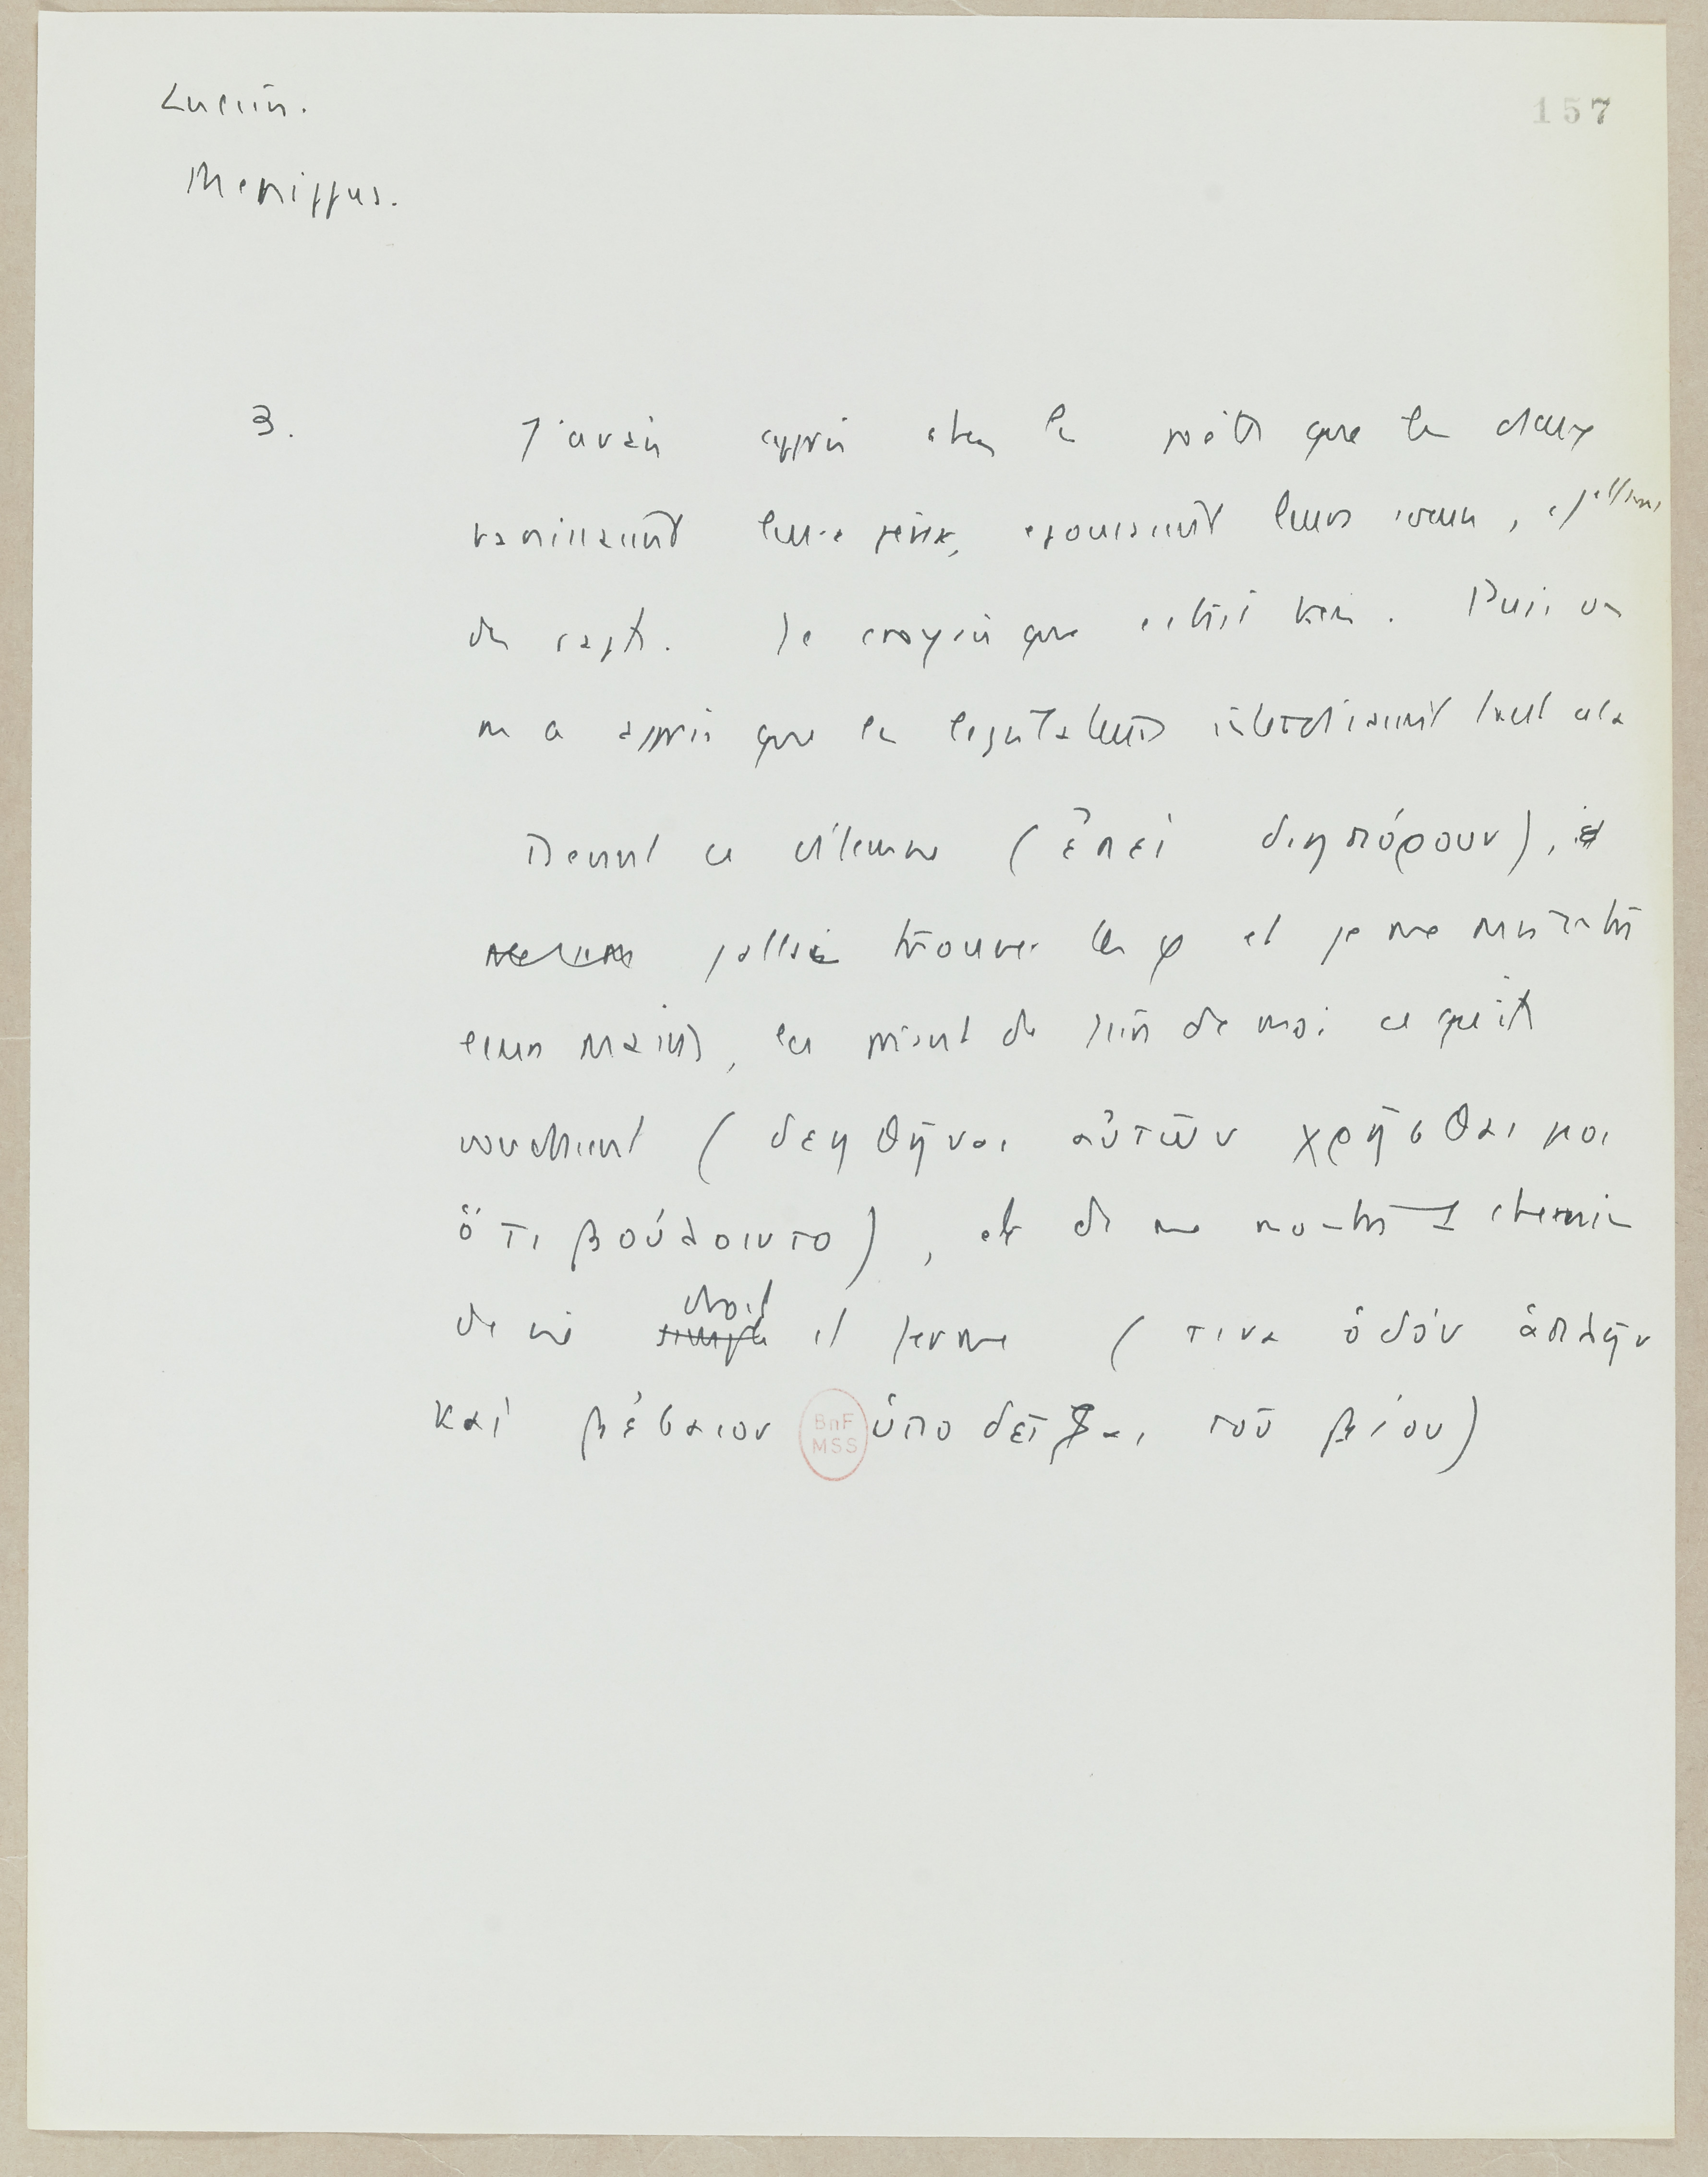 Lucien.
157
Menippus.
3. J'avais appris chez les poètes que les dieux
bannissaient leurs pères, épousaient leurs sœurs,
des rapts. Je croyais que c'était bien. Puis on
m'a appris que les législateurs interdisaient tout cela
Devant ce dilemme (ἐπεὶ διηπόρουν), et
j'allais trouver les φ et je me mis entre
leurs mains, les priant de faire de moi ce qu'ils
voudraient (δεηθῆναι αὐτῶν χρῆσθαι μοι
ὅ τι βούλοιντο), et de me montrer chemin
droit
de vie simple et ferme (τινα ὁδὸν ἁπλῆν
καὶ βέβαιον ὑποδεῖξαι τοῦ βίου)
BnF
MSS